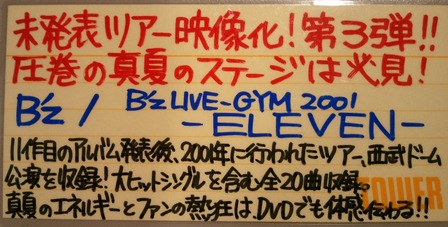 未発表ツアー映像化!第3弾!!
圧巻の真夏のステージは必見!
B'z / B'z LIVE-GYM 2001
-ELEVEN-
11作目のアルバム発表後、2001年に行われたツアー、西武ドーム
公演を収録!大ヒットシングルを含む全20曲収録。
真夏のエネルギーとファンの熱狂はDVDでも体感伝わる!!
TOWER